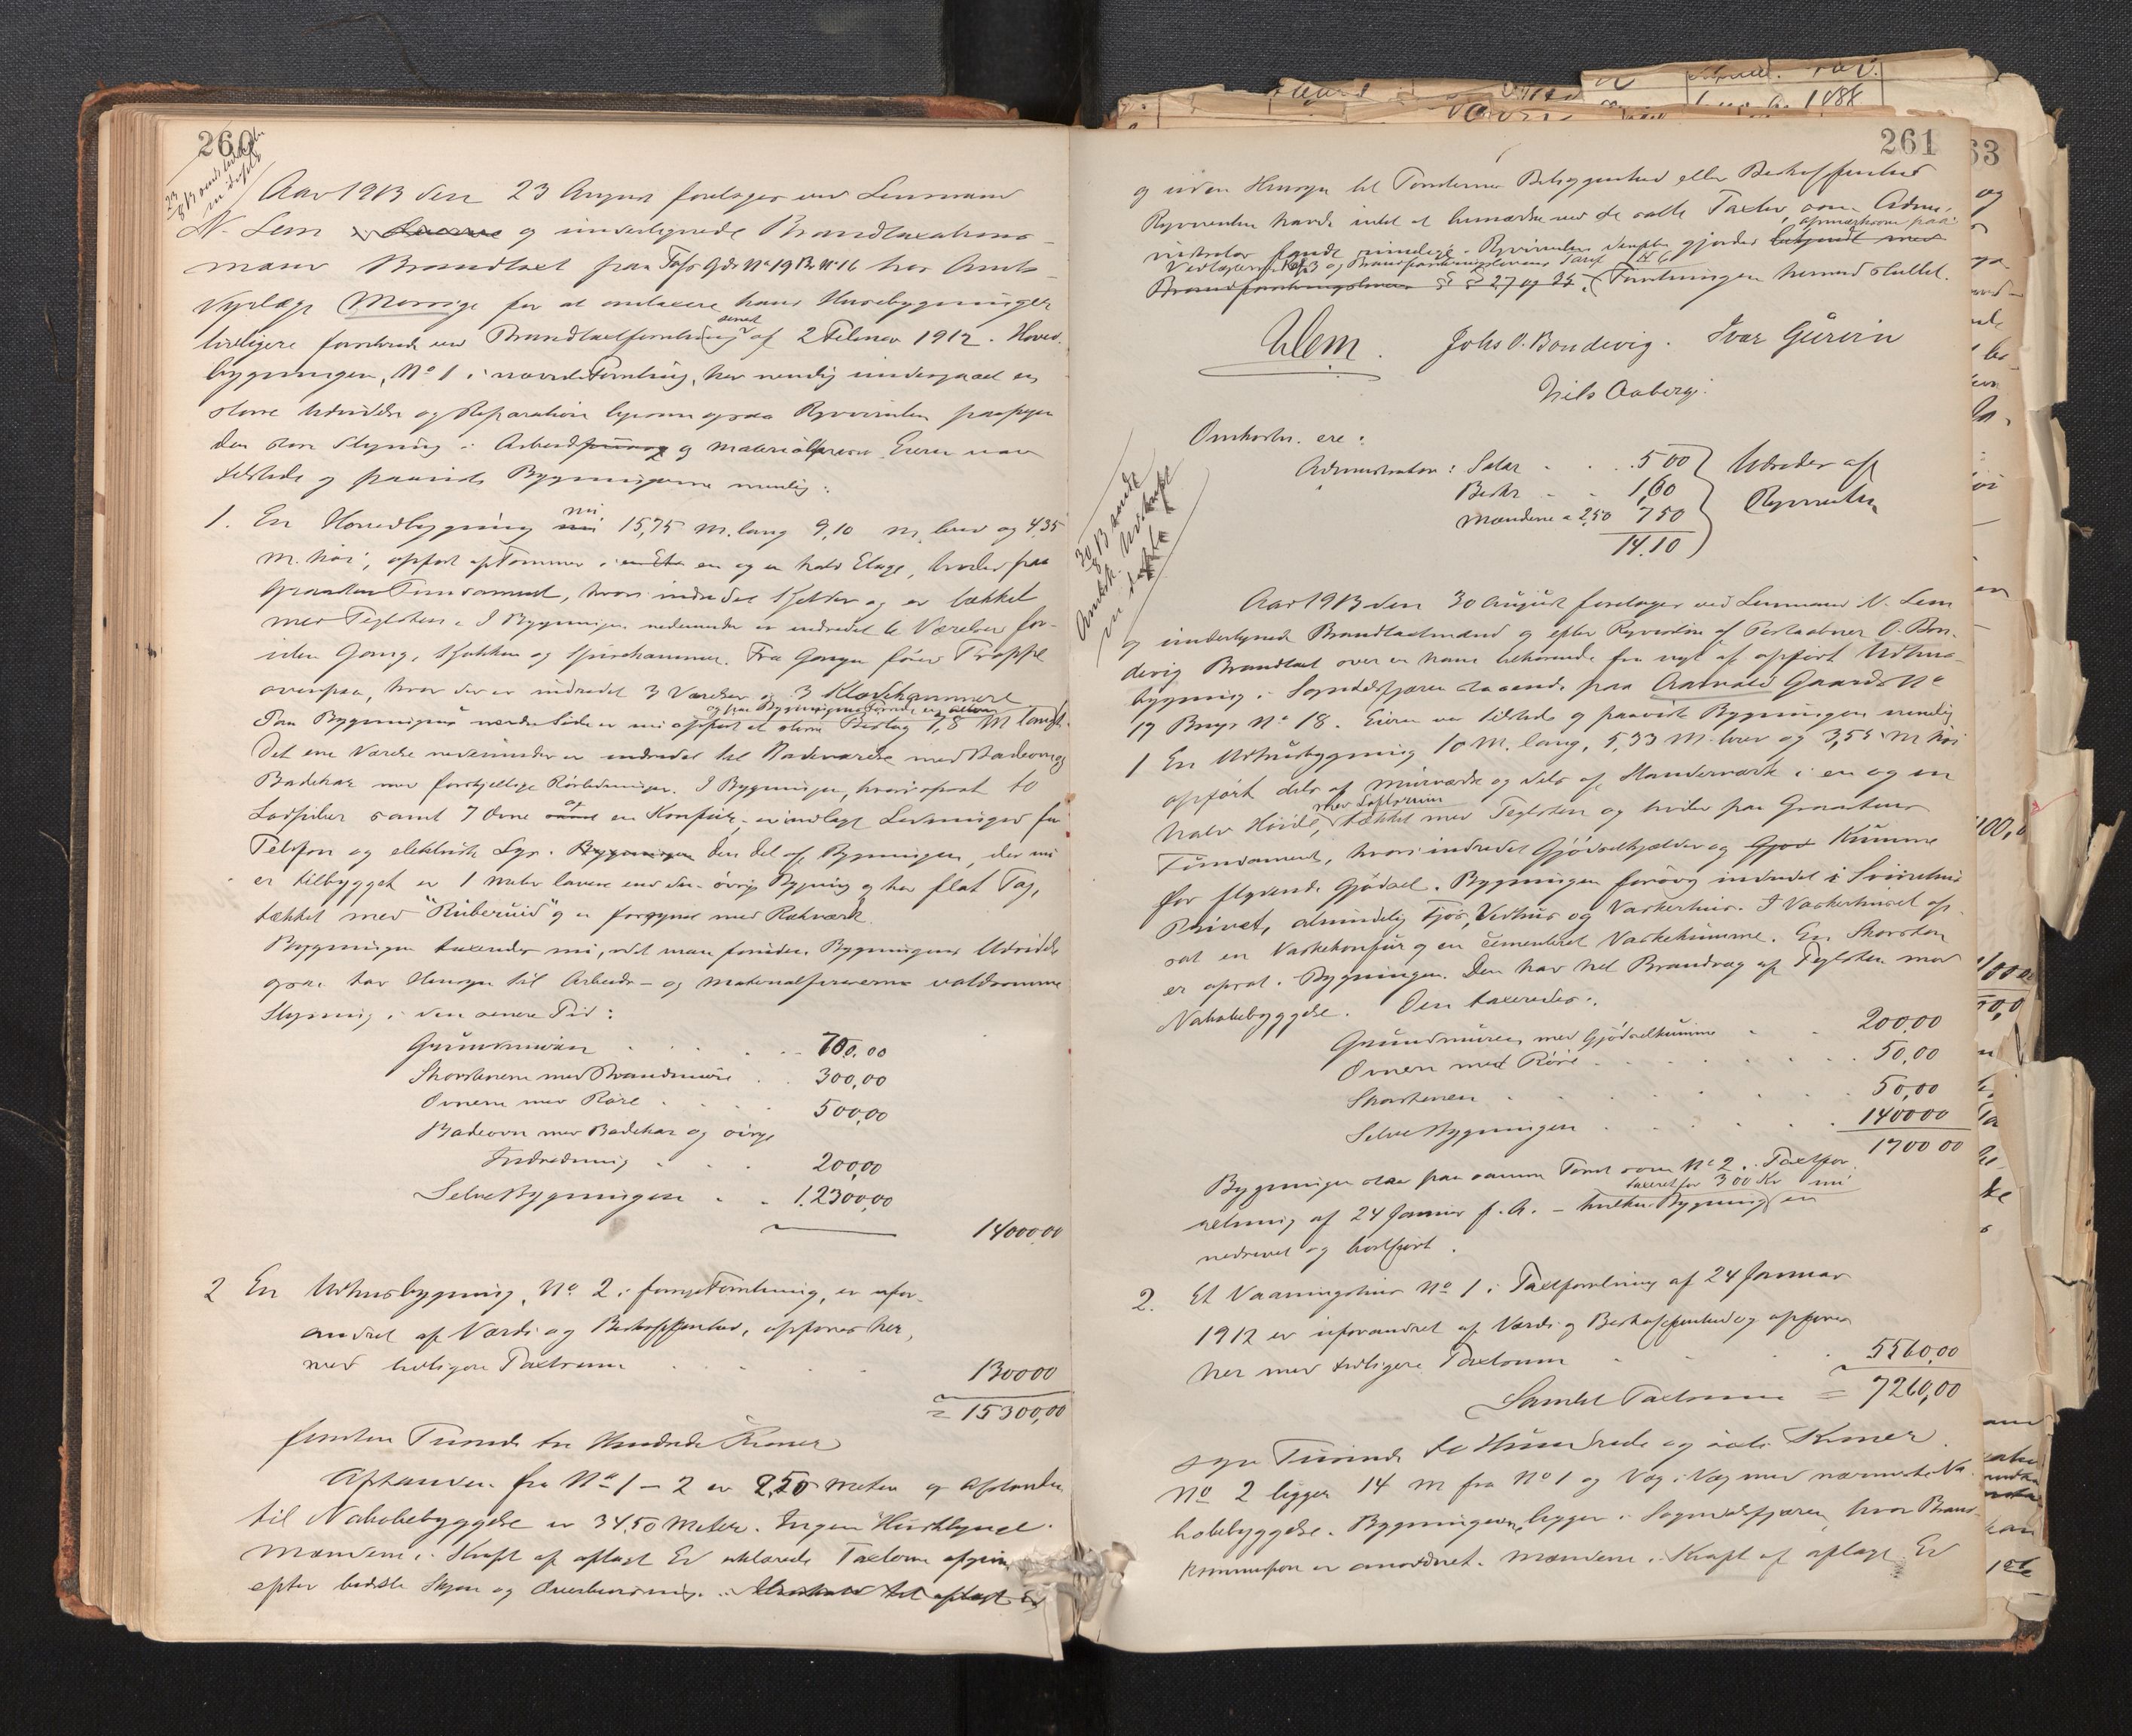 260
Aar 1913 den 23 August foretoges ved Lensmand
N. Lem og undertegnede Brandtaxations-
mænd Brandtaxt paa Gds No 19 Br. No 16 hos Amts
for at omtaxere hans Husebygninger
tidligere ved Brandtaxtforretning senest af 2 Februar 1912. Hoved-
bygningen, No 1 i nævnte Forretning, har nemlig undergaaet en
større Udvidelse og Reparation ligesom ogsaa Rekvirenten paapeger
den store Stigning i Arbeids og Materialpriser. Eieren var
tilstede og paaviste Bygningerne nemlig:
1. En Hovedbygning nu 15,75 m. lang 9,10 m. bred og 4,35
m. høi, opført af Tømmer i en og en halv Etage, hviler paa
Fundament, hvori indredet Kjelder og er tækket
med Teglsten. I Bygningen nedenunder er indredet 6 Værelser for-
uden Gang, Kjøkken og Spisekammer. Fra Gangen fører Trappe
ovenpaa, hvor der er indredet 3 Værelser og 3 Klædekammere
Paa Bygningens nordre Side er nu opført et større Bislag 7,8 m langt.
Det ene Værelse nedenunder er indredet til Badeværelse med Badeovn og
Badekar med forskjellige Rørledninger. I Bygningen, hvori opsat to
samt 7 Ovne og en Komfur, er indlagt Ledninger for
Telefon og elektrisk Lys. Den Del af Bygningen, der nu
er tilbygget er 1 Meter lavere end den øvrige Bygning og har flat Tag,
tækket med "Ruberoid" og er forsynet med Rækværk.
Bygningen taxeredes nu, idet man foruden Bygningens Udvidelse
ogsaa tar Hensyn til Arbeids- og Materialprisernes voldsomme
Stigning i den senere Tid:
Grundmuren 700,00
Skorstenene med Brandmure 300,00
Ovnene med Røre 500,00
Badeovn med Badekar og øvrige
Indredning 200,00
Selve Bygningen 12300,00
14000,00
2 En Udhusbygning, No 2 i forrige Forretning, er ufor-
andret af Værdi og Beskaffenhed, opføres her,
med tidligere Taxtsum 1300 00
= 15300,00
femten Tusinde tre Hundrede Kroner
Afstanden fra No 1 – 2 er 2,50 Meter og Afstanden
til Nabobebyggelse er 34,50 Meter. Ingen
Mændene i Kraft af aflagt Ed erklærede Taxterne afgivne
efter bedste Skjøn og Overbevisning.
261
og uden Hensyn til Tomternes Beliggenhed eller Beskaffenhed
Rekvirenten havde intet at bemærke ved de satte Taxter, som Admi-
nistrator fandt rimelige. Rekvirenten gjordes opmærksom paa
§ § 27 og 35. Forretningen hermed sluttet.
NLem. Johs O. Bondevig. Ivar
Nils Aaberg.
Omkostn. ere:
Administrator: Salær 5 00
Bestk 1,60
Mændene a 2,50 7 50
14.10
Udredes af
Rekvirenten
Aar 1913 den 30 August foretoges ved Lensmand N. Lem
og undertegnede Brandtaxtmænd og efter Rekvisition af Postaabner O. Bon-
devig Brandtaxt over en ham tilhørende fra nyt af opført Udhus-
bygning i Sogndalsfjæren staaende paa Gaards No
17 Brugs No 18. Eieren var tilstede og paaviste Bygningen nemlig
1 En Udhusbygning 10 M. lang, 5,33 M. bred og 3,55 M høi
opført dels af Murværk og dels af Standerværk i en og en
halv Høide, med Loftsrum tækket med Teglsten og hviler paa Graastens
Fundament, hvori indredet Gjødselkjælder og Kumme
for flydende Gjødsel. Bygningen forøvrig indredet i Svinehus
Privet, almindelig Fjøs, Vedhus og Vaskerhus. I Vaskerhuset op-
sat en Vaskekomfur og en cementeret Vaskekumme. En Skorsten
er opsat i Bygningen. Den har hel Brandvæg af Teglsten mod
Nabobebyggelse. Den taxeredes:
Grundmuren med Gjødselkumme 200,00
Ovnen med Røre 50,00
Skorstenen 50,00
Selve Bygningen 1400 00
1700 00
Bygningen staar paa samme Tomt som No 2 i Taxtfor-
retning af 24 Januar f. A. – taxeret for 300 Kr hvilken Bygning nu er
nedrevet og bortført.
2. Et Vaaningshus No 1 i Taxtforretning af 24 Januar
1912 er uforandret af Værdi og Beskaffenhed og opføres
her med tidligere Taxtsum 5560,00
Samlet Taxtsum = 7260,00
syv Tusinde to Hundrede og seksti Kroner.
No 2 ligger 14 m fra No 1 og Væg i Væg med nærmeste Na-
bobebyggelse. Bygningerne ligger i Sogndalsfjæren, hvor Brand-
kommission er anordnet. Mændene i Kraft af aflagt Ed